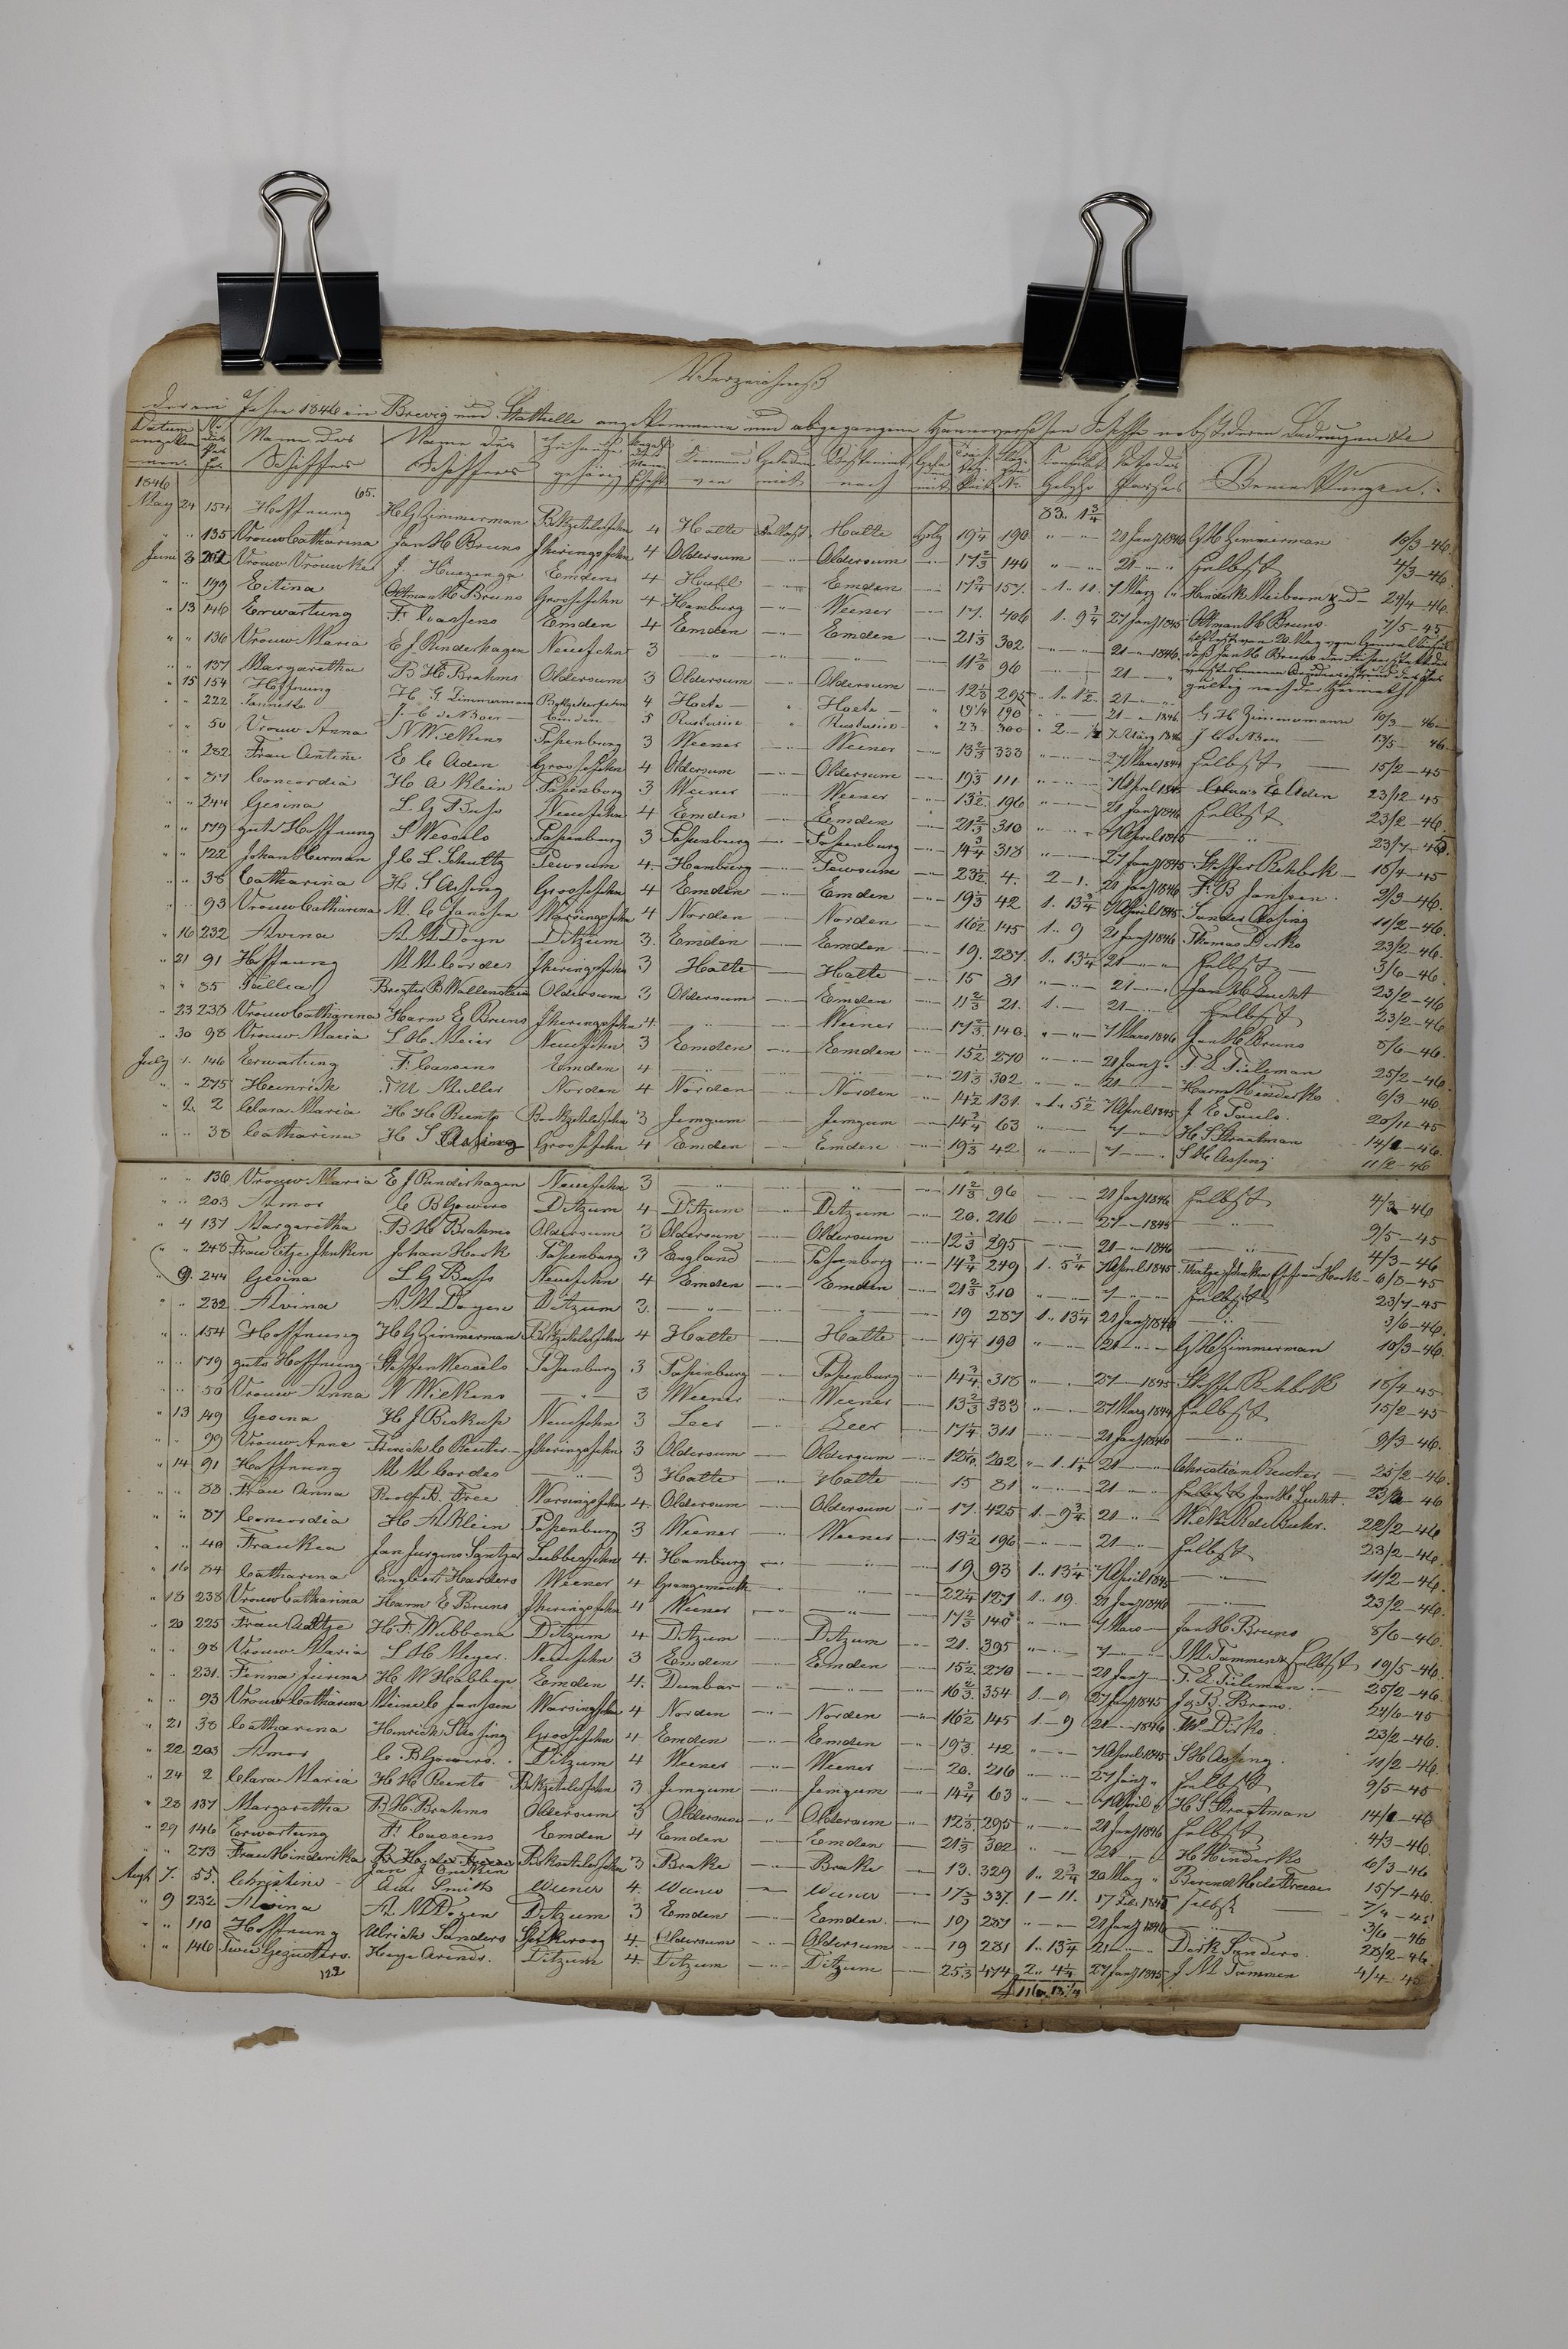 Verzeichniß
der im Jahre 1846 in Brevig und Stathelle angekommene und abgegangene Hannoversche Schiffe nebst deren Ladungen &c
Datum angekommen. No des Passes Name des Schiffes Name des Schiffers zu Hause gehörig Anzahl der Mannschaft Kommend von Geladen mit Bestimmt nach Geladen mit No. Konsulat Gebühr Dato des Passes Bemerkungen.
1846 65. 83. 1 3/4
May 24 154 Hoffnung H G Zimmerman Bkzetelerfehn 4 Halte Ballast Halte Holz 19 1/4 190 " " 21 Janj 1846 G H Zimmerman 10/3-46
" " 135 Vrouw Catharina Jan H Bruns Jheringsfehn 4 Oldersum " Oldersum " 17 2/3 140 " " 21 " " selbst 4/3-46
Juni 3 202 Vrouw Vrouwke J. Huszenga Emden 4 Huell " Emden " 17 3/4 157. 1. 11. 7 März " Hinderk Meiboom 24/4-46
" " 199 Eitina Oltman H Bruns Groosefehn 4 Hamburg " Weener " 17. 406 1. 9 3/4 27 Janj 1845 Oltman H Bruns. 7/5-45
" 13 146 Erwartung F. Cassens Emden 4 Emden " Emden " 21 1/3 302 " " 21 " 1846.
" " 136 Vrouw Maria E J Runderhagen Neuefehn 3 " " " " 11 2/3 96 " 21 " "
" " 137 Margaretha B H Brahms Oldersum 3 Oldersum " Oldersum " 12 1/3 295 1. 1 1/2 21 " " gültig nach der Heimath
" 15 154 Hoffnung H. G. Zimmerman Bkzetelerfehn 4 Haete " Haete " 19 1/4 190 " 21 " 1846. G H Zimmermann 10/3 46
" " 222 J. C de Boer Emden 5 Rustusie " Rustusie " 23 300 2. 7 März 1846 13/5 46.
" " 50 Vrouw Anna N Wilkens Papenburg 3 Weener " Weener " 13 2/3 333 " " 27 März 1844 selbst 15/2-45
" " 282 Frau Antine E C Aden Groosefehn 4 Oldersum " Oldersum " 19 1/3 111 " " 7 April 1845 E Aden 23/12-45
" " 87 Concordia H A Klein Papenburg 3 Weener " Weener " 13 1/2 196 " " 21 Janj 1846 selbst 23/2-46
" " 244 Gesina L G Buss Neuefehn 4 Emden " Emden " 21 2/3 310 " " 7 April 1845 " 23/7-45.
" " 179 gute Hoffnung S Wessels Papenburg 3 Papenburg " Papenburg " 14 3/4 318 " " 27 Janj 1845 Steffen Rehbok 18/4-45
" " 122 Johan Herman J C L Schultz Pewsum 4. Hamburg " Pewsum " 23 1/2 4. 2-1. 21 Janj 1846 F. B Janssen. 9/3-46.
" " 38 Catharina H. S Assing Groosefehn 4 Emden " Emden " 19 1/3 42 1. 13 3/4 7 April 1845 Sander Assing 11/2-46.
" " 93 Vrouw Catharina M. C Janssen Warsingsfehn 4 Norden " Norden " 16 1/2 145 1. 9 21 Janj 1846 Thomas Dirks 23/2-46.
" 16 232 Alvina A M Doyn Ditzum 3. Emden " Emden " 19. 287 1. 13 1/4 21 " " selbst 3/6-46
" 21 91 Hoffnung M M Cordes Jheringsfehn 3 Halte " Halte " 15 81 " " 21 " " Jan H Lucht 23/2-46
" " 85 Tallea Bregter B Wallenstein Oldersum 3 Oldersum " Emden " 11 2/3 21. 1. 21 " selbst 23/2-46
" 23 238 Vrouw Catharina Harm E Bruns Jheringsfehn 4. " " Weener " 17 2/3 140. " " 7 März 1846 Jan H Bruns 8/6-46.
" 30 98 Vrouw Maria L H Meier Neuefehn 3 Emden " Emden " 15 1/2 270 " " 21 Janj " T. E Tieleman 25/2-46
July 1. 146 Erwartung F. Cassens Emden 4 " " " " 21 1/3 302 " " 21 " " Harm Hinderks 6/3-46.
" " 275 Heinrich F. U Müller Norden 4 Norden " Norden " 14 1/2 131. 1. 5 1/2 7 April 1845 J E Pauls. 20/11-45
" 2. 2 Clara Maria H H Bents Bkzetelerfehn 3 Jemgum " Jemgum " 14 3/4 63 " " 7 " " H S Straatman 14/2-46.
" " 38 Catharina H S Assing Groosefehn 4 Emden " Emden " 19 1/3 42 " " 7 " " S H Assing 11/2-46
" " 136 Vrouw Maria E J Runderhagen Neuefehn 3 " " " " 11 2/3 96 " " 21 Janj 1846 selbst 4/3-46
" " 203 Amor C B Gowers Ditzum 4 Ditzum " Ditzum " 20. 216 " " 27 " 1845 " 9/5-45
" 4 137 Margaretha B H Brahms Oldersum 3 Oldersum " Oldersum " 12 1/3 295 " " 21 " 1846 " 4/3-46
" " 248 Frau Etje Jhnken Johan Hook Papenburg 3 England " Papenburg " 14 3/4 249 1. 5 3/4 7 April 1845 Hook 6/8-45
" 9. 244 Gesina L G Buss Neuefehn 4 Emden " Emden " 21 2/3 310 " " 7 " " selbst 23/7-45
" " 232 Alvina A M Doyen Ditzum 3. " " " " 19 287 1.. 13 1/4 21 Janj 1846 " 3/6-46.
" " 154 Hoffnung H G Zimmerman Bkzetelerfehn 4 Halte " Halte " 19 1/4 190 " " 21 " " G H Zimmerman 10/3-46.
" " 179 gute Hoffnung Steffen Wessels Papenburg 3 Papenburg " Papenburg " 14 3/4 318 " " 27 " 1845 Steffen Rehbok 18/4-45
" " 50 Vrouw Anna N Wilkens " 3 Weener " Weener " 13 2/3 333 " " 27 März 1844 selbst 15/2-45
" 13 149 Gesina H J Biskup Neuefehn 3 Leer " Leer " 17 1/4 311 " " 21 Janj 1846 " 9/3-46.
" " 99 Vrouw Anna Hinrich C Reuter Jheringsfehn 3 Oldersum " Oldersum " 12 1/6 202 1. 1 1/4 21 " " Christian Reuter 25/2-46
" 14 91 Hoffnung M M Cordes " 3 Halte " Halte " 15 81 " " 21 " " Jan H Lucht. 23/2-46
" " 88 Frau Anna Roelf B. Free Warsingsfehn 4. Oldersum " Oldersum " 17. 425 1. 9 3/4 21 " " Wilke R de Buhr. 22/2-46
" " 87 Concordia H A Klein Papenburg 3 Weener " Weener " 13 1/2 196 " " 21 " " selbst 23/2-46.
" " 40 Fraukea Jan Jurgens Santjer Lubbersfehn 4. Hamburg " " " 19 93 1. 13 1/4 7 April 1845 " 11/2-46
" 16 84 Catharina Englbert Harders Weener 4 Grangemouth " " 22 1/4 127 1. 19. 21 Janj 1846 " 23/2-46.
" 18 238 Vrouw Catharina Harm E Bruns Jheringsfehn 4 Weener " " " 17 2/3 140 " " 7 März " Jan H Bruns 8/6-46.
" 20 225 Frau Aaltje H. F. Wubbena Ditzum 4 Ditzum " Ditzum " 21. 395 " " 7 " " J M Tammen selbst 19/5-46.
" " 98 Vrouw Maria L H Meyer. Neuefehn 3 Emden " Emden " 15 1/2 270 " " 21 Janj " T. E Tieleman. 25/2-46.
" " 231. Finna Jurina H. W Habben Emden 4. Dunbar " " " 16 2/3 354 1. 9 27 Janj 1845 J. B. Brons. 24/6-45
" " 93 Vrouw Catharina Meine C Janssen Warsingsfehn 4 Norden " Norden " 16 1/2 145 1. 9 21 " 1846 Th. Dirks. 23/2-46.
" 21 38 Catharina Hinrich S Assing Groosefehn 4 Emden " Emden " 19 1/3. 42 " " 7 April 1845 S H Assing. 11/2-46.
" 22 203 Amor C B Gowers. Ditzum 4 Weener " Weener " 20. 216 " " 27 Janj " selbst 9/5-45
" 24 2 Clara Maria H H Bents Bkzetelerfehn 3 Jemgum " Jemgum " 14 3/4 63 " " 7 April " H S Straatman 14/2-46
" 28 137 Margaretha B H. Brahms Oldersum 3 Oldersum " Oldersum " 12 1/3 295 " " 21 Janj 1846 selbst 4/3-46.
" 29 146 Erwartung F. Cassens Emden 4 Emden " Emden " 21 1/3 302 " " 21 " " H Hinderks 6/3-46
" " 273 Frau Hinderika B. H. de Freese Bkzetelerfehn 3 Brake " Brake " 13. 329 1. 2 3/4 20 May " Berend H de Freese 15/7-46.
Augt 7. 55. Christine Smith Weener 4. Weener " Weener " 17 2/3 337. 1-11. 17 Feb 1845 selbst
" 9 232 Alvina A. M Doyen Ditzum 3 Emden " Emden. " 19 287 " " 21 Janj 1846 " 3/6-46
" " 110 Hoffnung Ulrich Sanders Spikeroog 4. Oldersum " Oldersum " 19 281 1. 13 1/4 21 " " Dirk Sanders. 28/2-46.
" " 146 Twee Gezusters. Heye Arends. Ditzum 4 Ditzum " Ditzum " 25 1/3 474 2. 4 1/4 27 Janj 1845 J M Tammen 4/4-45
122